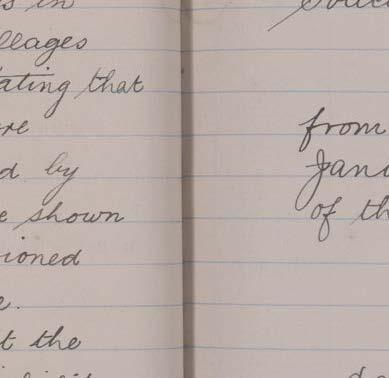 s in
llages
ating that
re
d by
e shown
ioned
e.
t the
from
Janu
of th